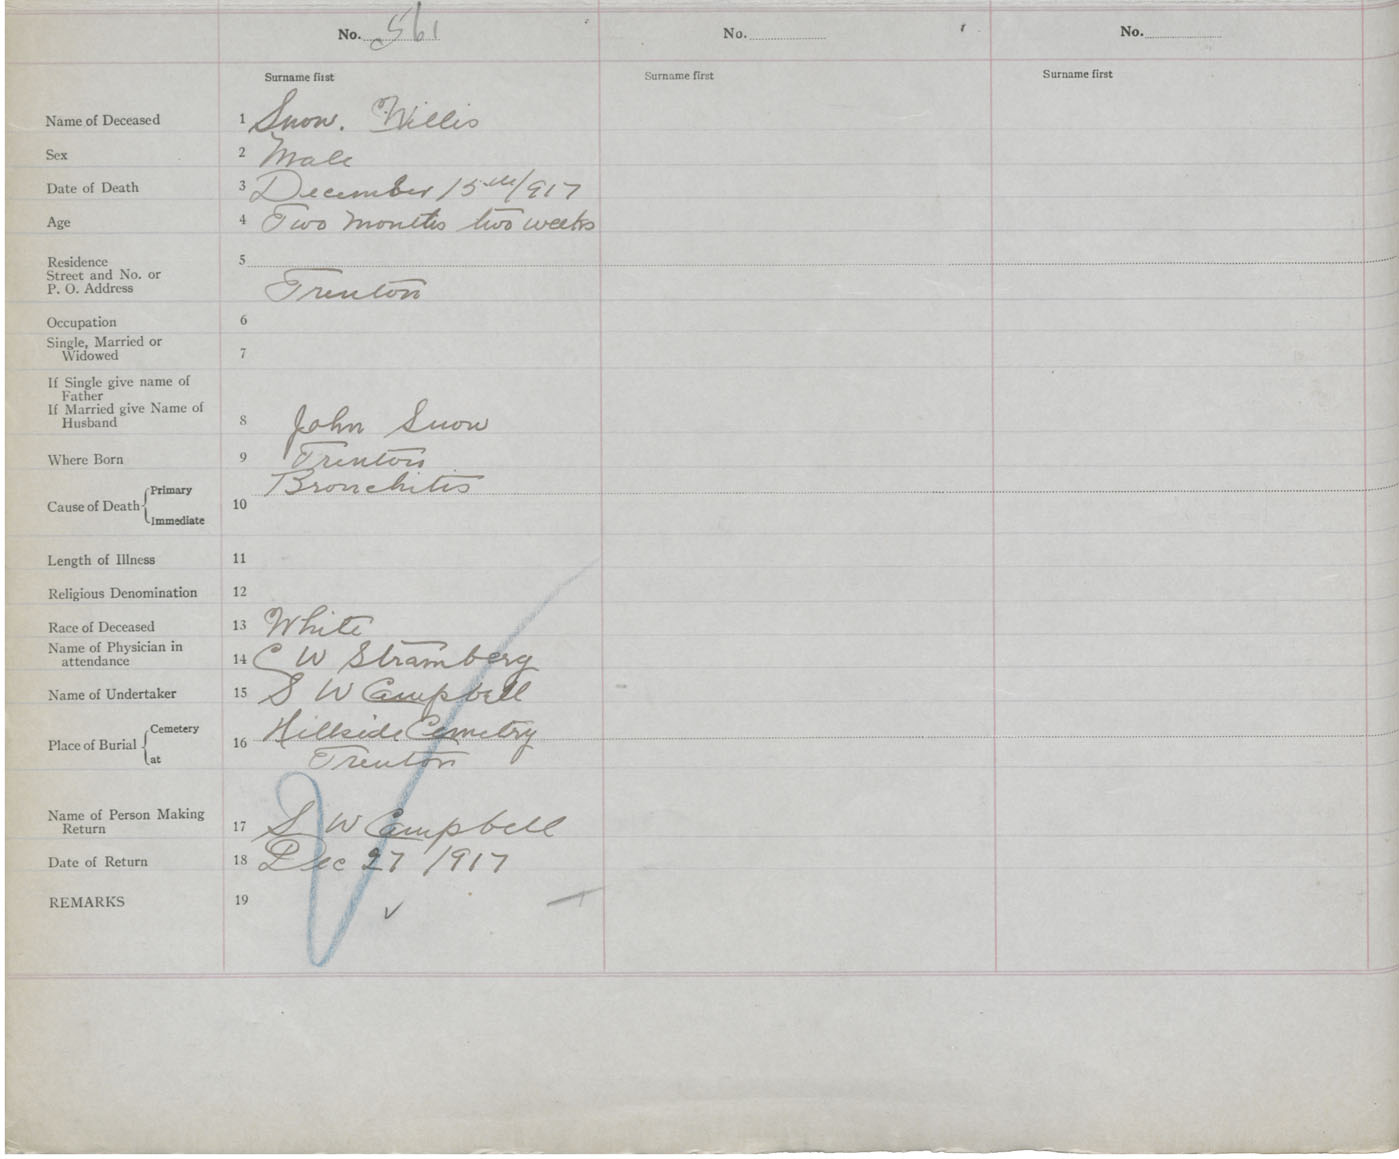 No. 561
No.
No.
Surname first
Surname first
Surname first
Name of Deceased 1 Snow. Willis
Sex 2 Male
Date of Death 3 December 15th/917
Age 4 Two months two weeks
Residence 5
Street and No. or
P. O. Address Trenton
Occupation 6
Single, Married or
Widowed 7
If Single give name of
Father
If Married give Name of
Husband 8 John Snow
Where Born 9 Trenton
Cause of Death 10 Primary Bronchitis
Immediate
Length of Illness 11
Religious Denomination 12
Race of Deceased 13 White
Name of Physician in
attendance 14 C W Stramberg
Name of Undertaker 15 S W Campbell
Place of Burial 16 Cemetery Hillside Cemetry
at Trenton
Name of Person Making
Return 17 S W Campbell
Date of Return 18 Dec 27 /917
REMARKS 19